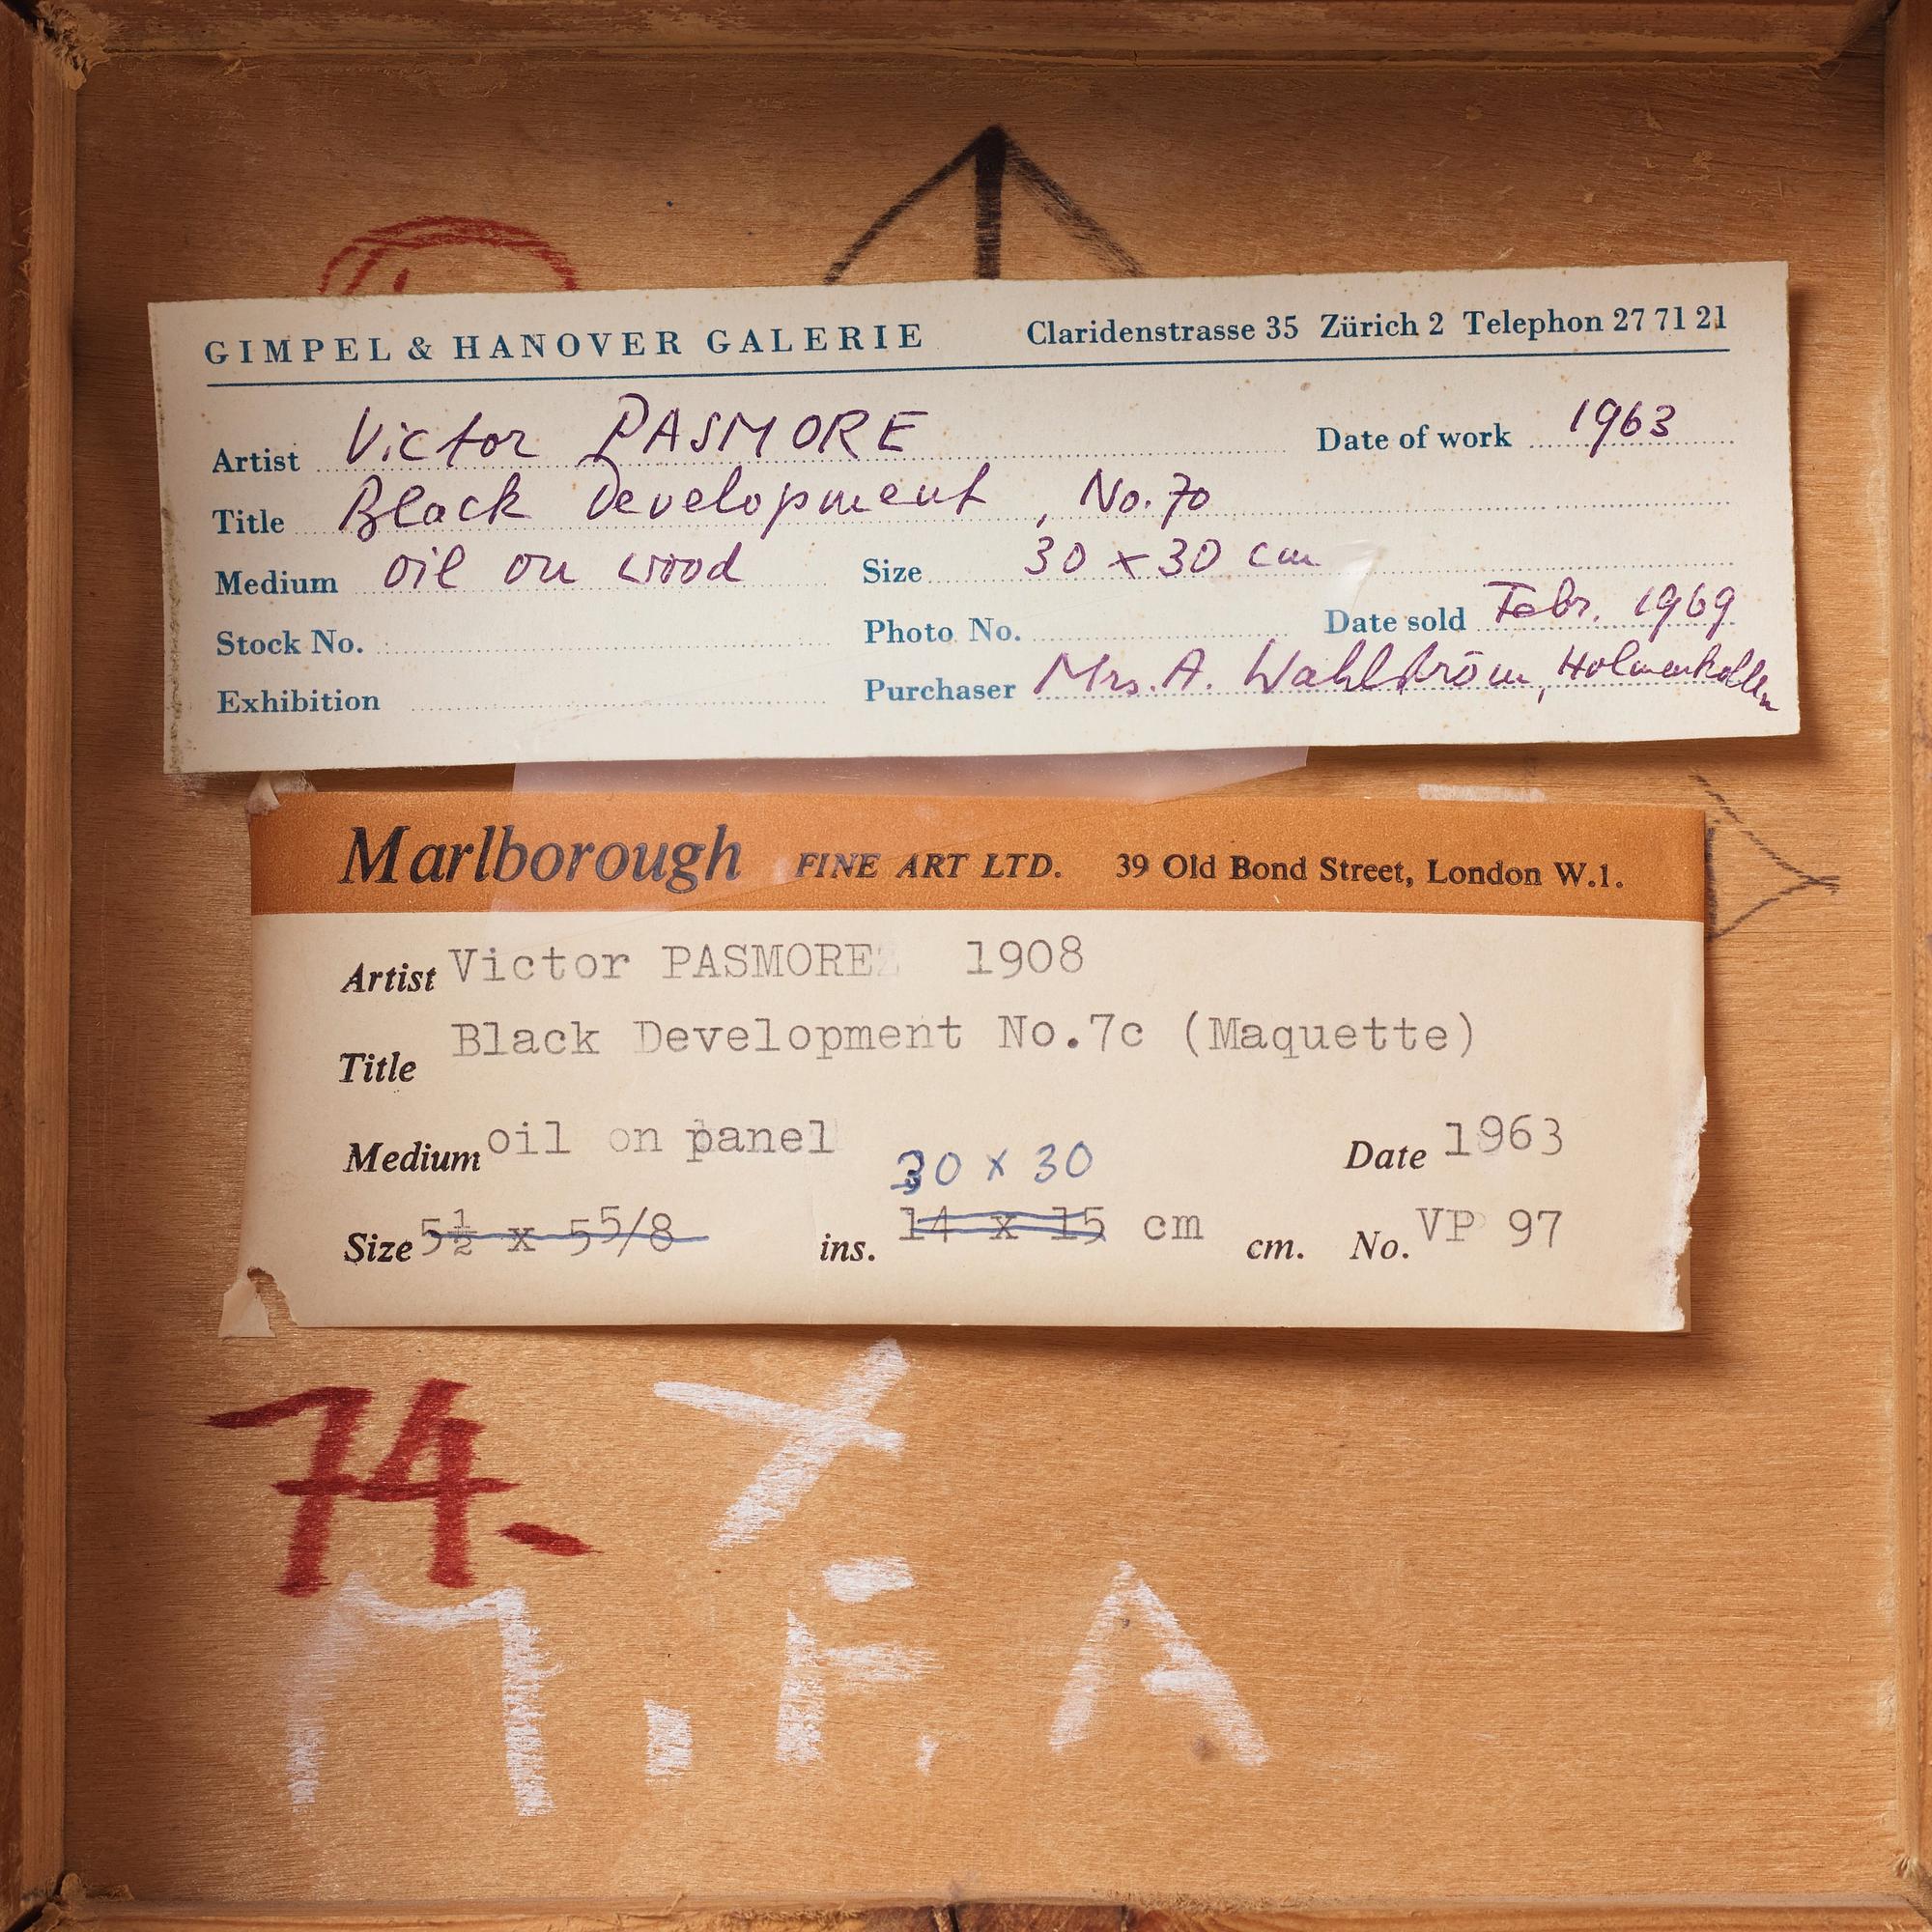 GIMPEL & HANOVER GALERIE Claridenstrasse 35 Zürich 2 Telephon 27 71 21
Artist Victor PASMORE Date of work 1963
Title Black Development, No. 70
Medium oil on wood Size 30 x 30 cm
Stock No. Photo No. Date sold Febr. 1969
Exhibition Purchaser Mrs. A. Wahlström, Holmenkollen
Marlborough FINE ART LTD. 39 Old Bond Street, London W.1.
Artist Victor PASMORE 1908
Title Black Development No.7c (Maquette)
Medium oil on panel Date 1963
30 x 30
Size 5½ x 5 5/8 ins. 14 x 15 cm cm. No. VP 97
74.
M.F.A